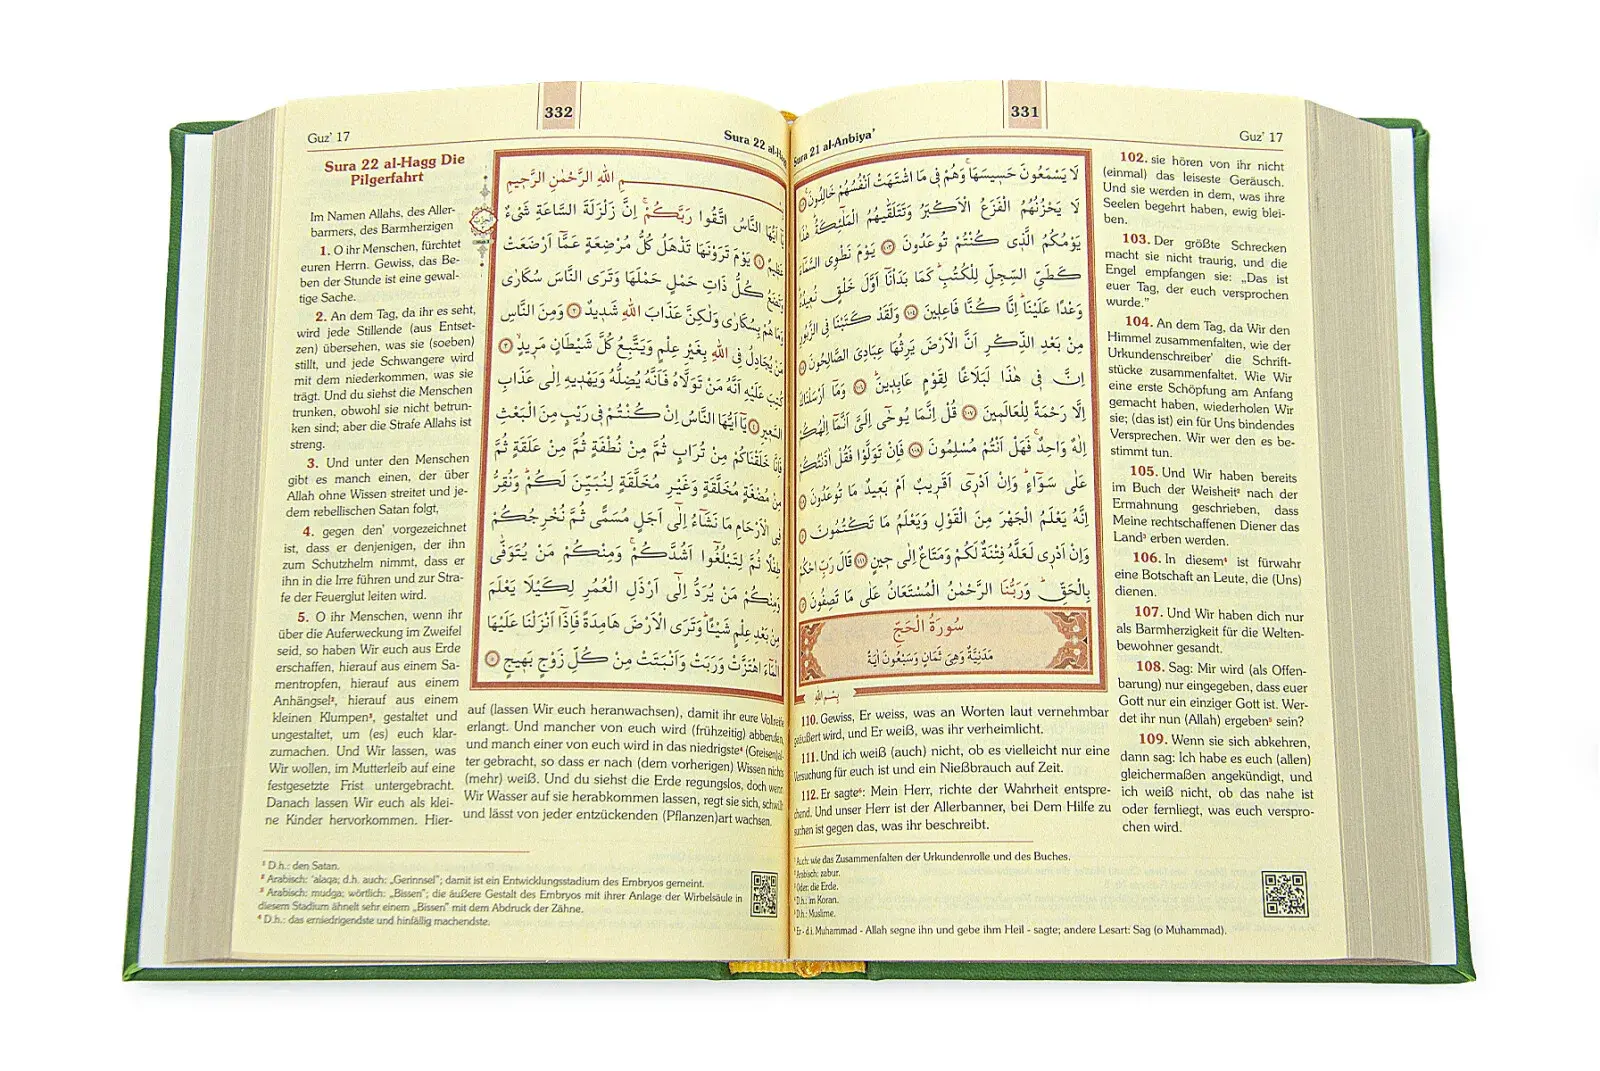 331
Sura 21 al-Anbiya’
Guz’ 17
لَا يَسْمَعُونَ حَسِيسَهَا وَهُمْ فِى مَا اشْتَهَتْ اَنْفُسُهُمْ خَالِدُونَ
لَا يَحْزُنُهُمُ الْفَزَعُ الْاَكْبَرُ وَتَتَلَقّٰيهُمُ الْمَلٰٓئِكَةُ هٰذَا
يَوْمُكُمُ الَّذِى كُنْتُمْ تُوعَدُونَ ﴿١٠٣﴾ يَوْمَ نَطْوِى السَّمَٓاءَ
كَطَيِّ السِّجِلِّ لِلْكُتُبِ كَمَا بَدَاْنَٓا اَوَّلَ خَلْقٍ نُعِيدُهُ
وَعْدًا عَلَيْنَا اِنَّا كُنَّا فَاعِلِينَ ﴿١٠٤﴾ وَلَقَدْ كَتَبْنَا فِى الزَّبُورِ
مِنْ بَعْدِ الذِّكْرِ اَنَّ الْاَرْضَ يَرِثُهَا عِبَادِىَ الصَّالِحُونَ
اِنَّ فِى هٰذَا لَبَلَاغًا لِقَوْمٍ عَابِدِينَ ﴿١٠٦﴾ وَمَٓا اَرْسَلْنَاكَ
اِلَّا رَحْمَةً لِلْعَالَمِينَ ﴿١٠٧﴾ قُلْ اِنَّمَا يُوحٰٓى اِلَىَّ اَنَّمَٓا اِلٰهُكُمْ
اِلٰهٌ وَاحِدٌ فَهَلْ اَنْتُمْ مُسْلِمُونَ ﴿١٠٨﴾ فَاِنْ تَوَلَّوْا فَقُلْ اٰذَنْتُكُمْ
عَلٰى سَوَٓاءٍ وَاِنْ اَدْرِٓى اَقَرِيبٌ اَمْ بَعِيدٌ مَا تُوعَدُونَ
اِنَّهُ يَعْلَمُ الْجَهْرَ مِنَ الْقَوْلِ وَيَعْلَمُ مَا تَكْتُمُونَ
وَاِنْ اَدْرِى لَعَلَّهُ فِتْنَةٌ لَكُمْ وَمَتَاعٌ اِلٰى حِينٍ ﴿١١١﴾ قَالَ رَبِّ احْكُمْ
بِالْحَقِّ وَرَبُّنَا الرَّحْمٰنُ الْمُسْتَعَانُ عَلٰى مَا تَصِفُونَ
سُورَةُ الْحَجِّ
مَدَنِيَّةٌ وَهِىَ ثَمَانٍ وَسَبْعُونَ اٰيَةً
102. sie hören von ihr nicht
(einmal) das leiseste Geräusch.
Und sie werden in dem, was ihre
Seelen begehrt haben, ewig blei-
ben.
103. Der größte Schrecken
macht sie nicht traurig, und die
Engel empfangen sie: „Das ist
euer Tag, der euch versprochen
wurde.”
104. An dem Tag, da Wir den
Himmel zusammenfalten, wie der
Urkundenschreiber¹ die Schrift-
stücke zusammenfaltet. Wie Wir
eine erste Schöpfung am Anfang
gemacht haben, wiederholen Wir
sie; (das ist) ein für Uns bindendes
Versprechen. Wir wer den es be-
stimmt tun.
105. Und Wir haben bereits
im Buch der Weisheit² nach der
Ermahnung geschrieben, dass
Meine rechtschaffenen Diener das
Land³ erben werden.
106. In diesem⁴ ist fürwahr
eine Botschaft an Leute, die (Uns)
dienen.
107. Und Wir haben dich nur
als Barmherzigkeit für die Welten-
bewohner gesandt.
108. Sag: Mir wird (als Offen-
barung) nur eingegeben, dass euer
Gott nur ein einziger Gott ist. Wer-
det ihr nun (Allah) ergeben⁵ sein?
109. Wenn sie sich abkehren,
dann sag: Ich habe es euch (allen)
gleichermaßen angekündigt, und
ich weiß nicht, ob das nahe ist
oder fernliegt, was euch verspro-
chen wird.
110. Gewiss, Er weiss, was an Worten laut vernehmbar
geäußert wird, und Er weiß, was ihr verheimlicht.
111. Und ich weiß (auch) nicht, ob es vielleicht nur eine
Versuchung für euch ist und ein Nießbrauch auf Zeit.
112. Er sagte⁶: Mein Herr, richte der Wahrheit entspre-
chend. Und unser Herr ist der Allerbanner, bei Dem Hilfe zu
suchen ist gegen das, was ihr beschreibt.
¹ Auch: wie das Zusammenfalten der Urkundenrolle und des Buches.
² Arabisch: zabur.
³ Oder: die Erde.
⁴ D.h.: im Koran.
⁵ D.h.: Muslime.
⁶ Er - d.i. Muhammad - Allah segne ihn und gebe ihm Heil - sagte; andere Lesart: Sag (o Muhammad).
332
Guz’ 17
Sura 22 al-Hagg
Sura 22 al-Hagg Die
Pilgerfahrt
بِسْمِ اللهِ الرَّحْمٰنِ الرَّحِيمِ
يَٓا اَيُّهَا النَّاسُ اتَّقُوا رَبَّكُمْ اِنَّ زَلْزَلَةَ السَّاعَةِ شَىْءٌ
عَظِيمٌ ﴿١﴾ يَوْمَ تَرَوْنَهَا تَذْهَلُ كُلُّ مُرْضِعَةٍ عَمَّٓا اَرْضَعَتْ
وَتَضَعُ كُلُّ ذَاتِ حَمْلٍ حَمْلَهَا وَتَرَى النَّاسَ سُكَارٰى
وَمَا هُمْ بِسُكَارٰى وَلٰكِنَّ عَذَابَ اللهِ شَدِيدٌ ﴿٢﴾ وَمِنَ النَّاسِ
مَنْ يُجَادِلُ فِى اللهِ بِغَيْرِ عِلْمٍ وَيَتَّبِعُ كُلَّ شَيْطَانٍ مَرِيدٍ ﴿٣﴾
كُتِبَ عَلَيْهِ اَنَّهُ مَنْ تَوَلَّاهُ فَاَنَّهُ يُضِلُّهُ وَيَهْدِيهِ اِلٰى عَذَابِ
السَّعِيرِ ﴿٤﴾ يَٓا اَيُّهَا النَّاسُ اِنْ كُنْتُمْ فِى رَيْبٍ مِنَ الْبَعْثِ
فَاِنَّا خَلَقْنَاكُمْ مِنْ تُرَابٍ ثُمَّ مِنْ نُطْفَةٍ ثُمَّ مِنْ عَلَقَةٍ ثُمَّ
مِنْ مُضْغَةٍ مُخَلَّقَةٍ وَغَيْرِ مُخَلَّقَةٍ لِنُبَيِّنَ لَكُمْ وَنُقِرُّ
فِى الْاَرْحَامِ مَا نَشَٓاءُ اِلٰٓى اَجَلٍ مُسَمًّى ثُمَّ نُخْرِجُكُمْ
طِفْلًا ثُمَّ لِتَبْلُغُٓوا اَشُدَّكُمْ وَمِنْكُمْ مَنْ يُتَوَفّٰى
وَمِنْكُمْ مَنْ يُرَدُّ اِلٰٓى اَرْذَلِ الْعُمُرِ لِكَيْلَا يَعْلَمَ
مِنْ بَعْدِ عِلْمٍ شَيْـًٔا وَتَرَى الْاَرْضَ هَامِدَةً فَاِذَٓا اَنْزَلْنَا عَلَيْهَا
الْمَٓاءَ اهْتَزَّتْ وَرَبَتْ وَاَنْبَتَتْ مِنْ كُلِّ زَوْجٍ بَهِيجٍ ﴿٥﴾
Im Namen Allahs, des Aller-
barmers, des Barmherzigen
1. O ihr Menschen, fürchtet
euren Herrn. Gewiss, das Be-
ben der Stunde ist eine gewal-
tige Sache.
2. An dem Tag, da ihr es seht,
wird jede Stillende (aus Entset-
zen) übersehen, was sie (soeben)
stillt, und jede Schwangere wird
mit dem niederkommen, was sie
trägt. Und du siehst die Menschen
trunken, obwohl sie nicht betrun-
ken sind; aber die Strafe Allahs ist
streng.
3. Und unter den Menschen
gibt es manch einen, der über
Allah ohne Wissen streitet und je-
dem rebellischen Satan folgt,
4. gegen den¹ vorgezeichnet
ist, dass er denjenigen, der ihn
zum Schutzhelm nimmt, dass er
ihn in die Irre führen und zur Stra-
fe der Feuerglut leiten wird.
5. O ihr Menschen, wenn ihr
über die Auferweckung im Zweifel
seid, so haben Wir euch aus Erde
erschaffen, hierauf aus einem Sa-
mentropfen, hierauf aus einem
Anhängsel², hierauf aus einem
kleinen Klumpen³, gestaltet und
ungestaltet, um (es) euch klar-
zumachen. Und Wir lassen, was
Wir wollen, im Mutterleib auf eine
festgesetzte Frist untergebracht.
Danach lassen Wir euch als klei-
ne Kinder hervorkommen. Hier-
auf (lassen Wir euch heranwachsen), damit ihr eure Vollreife
erlangt. Und mancher von euch wird (frühzeitig) abberufen,
und manch einer von euch wird in das niedrigste⁴ (Greisen)al-
ter gebracht, so dass er nach (dem vorherigen) Wissen nichts
(mehr) weiß. Und du siehst die Erde regungslos, doch wenn
Wir Wasser auf sie herabkommen lassen, regt sie sich, schwillt
und lässt von jeder entzückenden (Pflanzen)art wachsen.
¹ D.h.: den Satan.
² Arabisch: ‘alaqa; d.h. auch: „Gerinnsel”; damit ist ein Entwicklungsstadium des Embryos gemeint.
³ Arabisch: mudga; wörtlich: „Bissen”; die äußere Gestalt des Embryos mit ihrer Anlage der Wirbelsäule in
diesem Stadium ähnelt sehr einem „Bissen” mit dem Abdruck der Zähne.
⁴ D.h.: das erniedrigendste und hinfällig machendste.